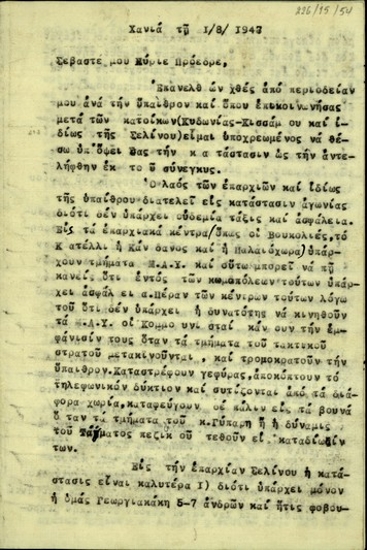 226/15/54
Χανιά τῇ 1/8/1947
Σεβαστέ μου Κύριε Πρόεδρε,
Επανελθ ών χθές ἀπό περιοδείαν
μου ἀνά τήν ὕπαιθρον καί ὅπου ἐπικοινωνήσας
μετά τῶν κατοίκων(Κυδωνίας-Κισσάμ ου καί ἰ-
δίως τῆς Σελίνου)εἶμαι ὑποχρεωμένος νά θέ-
σω ὑπ'ὄψει Σας τήν κ α τάστασιν ὡς τήν ἀντε-
λήφθην ἐκ το ῦ σύνεγκυς.
Ὁ λαός τῶν ἐπαρχιῶν καί ἰδίως
τῆς ὑπαίθρου διατελεῖ εἰς κατάστασιν ἀγωνίας
διότι δέν ὑπάρχει οὐδεμία τάξις καί ἀσφάλεια.
Εἰς τά ἐπαρχιακά κέντρα(ὅπως οἱ Βουκολιές,τό
Κ ατέλλι ἡ Κάν δανος καί ἡ Παλαιόχωρα)ὑπάρ-
χουν τμήματα Μ.Α.Υ καί οὕτω μπορεῖ νά πῇ
κανείς ὅτι ἐντός τῶν κωμοπόλεων τούτων ὑπάρ-
χει ἀσφάλ ει α.Πέραν τῶν κέντρων τούτων λόγω
τοῦ ὅτι δέν ὑπάρχει ἡ δυνατότης νά κινηθοῦν
τά Μ.Α.Υ. οἱ Κομμο υνι σταί κάν ουν τήν ἐμ-
φάνισίν τους ὅταν τά τμήματα τοῦ τακτικοῦ
στρατοῦ μετακινοῦνται , καί τρομοκρατοῦν τήν
ὕπαιθρον.Καταστρέφουν γεφύρας,ἀποκόπτουν τό
τηλεφωνικόν δύκτιον καί συτίζονται ἀπό τά διά-
φορα χωρία,καταφεύγουν δέ πάλιν εἰς τά βουνά
ὅ ταν τά τμήματα τοῦ κ.Γύπαρη ἤ ἡ δύναμις
τοῦ Τάγματος πεζικ οῦ τεθοῦν εἰ καταδίωξίν
των.
Εἰς τήν ἐπαρχίαν Σελίνου ἡ κατά-
στασις εἶναι καλυτέρα I) διότι ὑπάρχει μόνον
ἡ ὁμάς Γεωργιακάκη 5-7 ἀνδρῶν καί ἥτις φοβου-